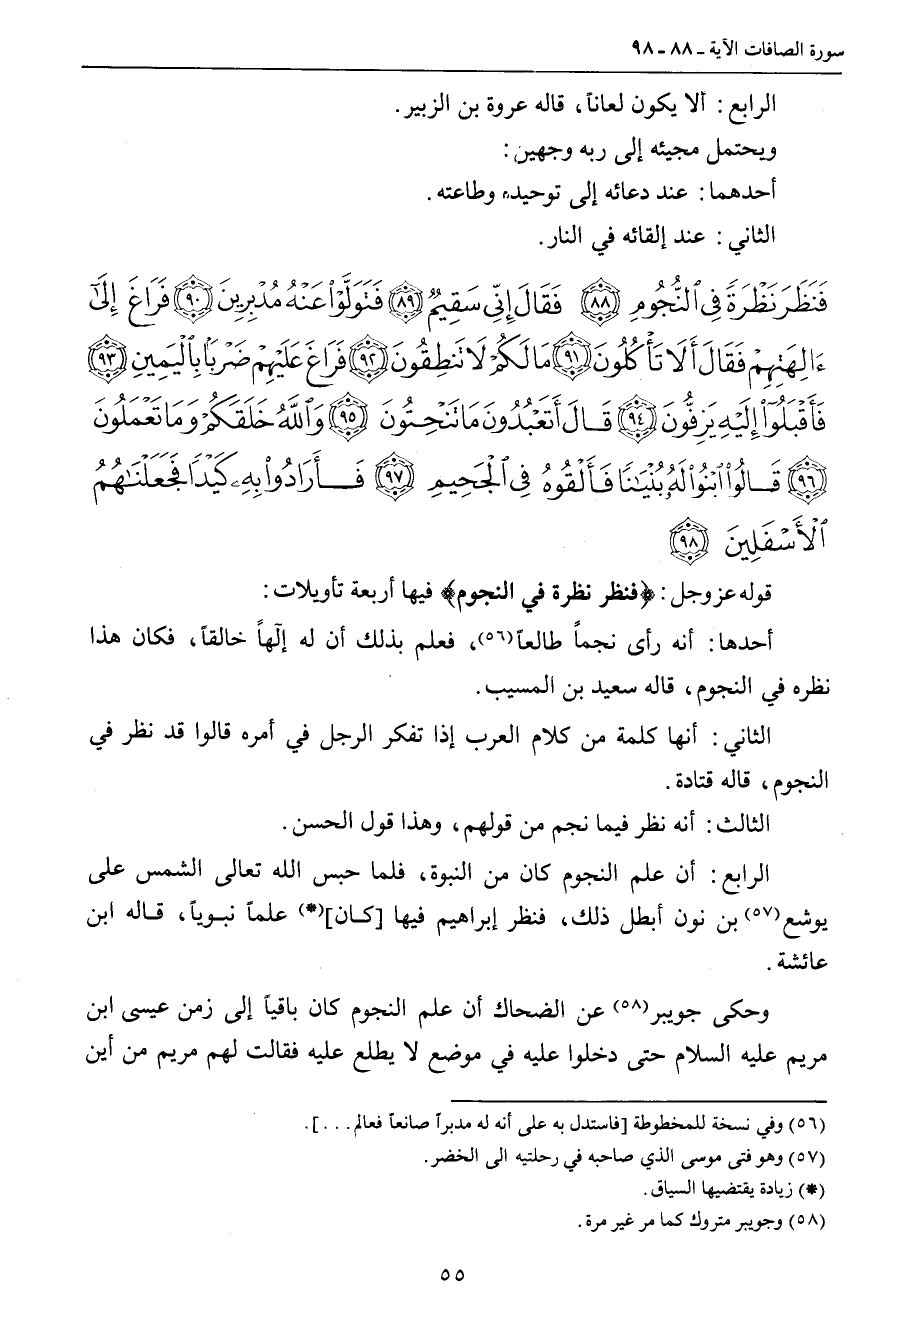 سورة الصافات الآية ـ ٨٨ ـ ٩٨
الرابع: ألا يكون لعاناً، قاله عروة بن الزبير.
ويحتمل مجيئه إلى ربه وجهين:
أحدهما: عند دعائه إلى توحيده وطاعته.
الثاني: عند إلقائه في النار.
فَنَظَرَ نَظْرَةً فِي ٱلنُّجُومِ ﴿٨٨﴾ فَقَالَ إِنِّي سَقِيمٌ ﴿٨٩﴾ فَتَوَلَّوْا۟ عَنْهُ مُدْبِرِينَ ﴿٩٠﴾ فَرَاغَ إِلَىٰٓ
ءَالِهَتِهِمْ فَقَالَ أَلَا تَأْكُلُونَ ﴿٩١﴾ مَا لَكُمْ لَا تَنطِقُونَ ﴿٩٢﴾ فَرَاغَ عَلَيْهِمْ ضَرْبًۢا بِٱلْيَمِينِ ﴿٩٣﴾
فَأَقْبَلُوٓا۟ إِلَيْهِ يَزِفُّونَ ﴿٩٤﴾ قَالَ أَتَعْبُدُونَ مَا تَنْحِتُونَ ﴿٩٥﴾ وَٱللَّهُ خَلَقَكُمْ وَمَا تَعْمَلُونَ
﴿٩٦﴾ قَالُوا۟ ٱبْنُوا۟ لَهُۥ بُنْيَٰنًا فَأَلْقُوهُ فِي ٱلْجَحِيمِ ﴿٩٧﴾ فَأَرَادُوا۟ بِهِۦ كَيْدًا فَجَعَلْنَٰهُمُ
ٱلْأَسْفَلِينَ ﴿٩٨﴾
قوله عز وجل: ﴿فنظر نظرة في النجوم﴾ فيها أربعة تأويلات:
أحدها: أنه رأى نجماً طالعاً(٥٦)، فعلم بذلك أن له إلٓهاً خالقاً، فكان هذا
نظره في النجوم، قاله سعيد بن المسيب.
الثاني: أنها كلمة من كلام العرب إذا تفكر الرجل في أمره قالوا قد نظر في
النجوم، قاله قتادة.
الثالث: أنه نظر فيما نجم من قولهم، وهذا قول الحسن.
الرابع: أن علم النجوم كان من النبوة، فلما حبس الله تعالى الشمس على
يوشع(٥٧) بن نون أبطل ذلك، فنظر إبراهيم فيها [كان](*) علماً نبوياً، قاله ابن
عائشة.
وحكى جويبر(٥٨) عن الضحاك أن علم النجوم كان باقياً إلى زمن عيسى ابن
مريم عليه السلام حتى دخلوا عليه في موضع لا يطلع عليه فقالت لهم مريم من أين
(٥٦) وفي نسخة للمخطوطة [فاستدل به على أنه له مدبراً صانعاً فعالم...].
(٥٧) وهو فتى موسى الذي صاحبه في رحلتيه الى الخضر.
(*) زيادة يقتضيها السياق.
(٥٨) وجويبر متروك كما مر غير مرة.
٥٥